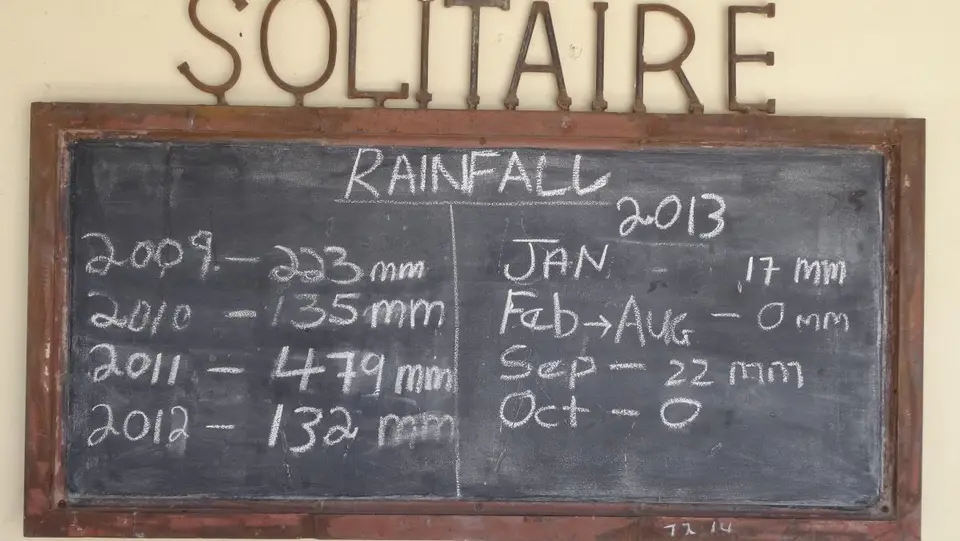 SOLITAIRE
RAINFALL
2009 - 223 mm
2010 - 135 mm
2011 - 479 mm
2012 - 132 mm
2013
JAN - 17 mm
Feb → AUG - 0 mm
Sep - 22 mm
Oct - 0